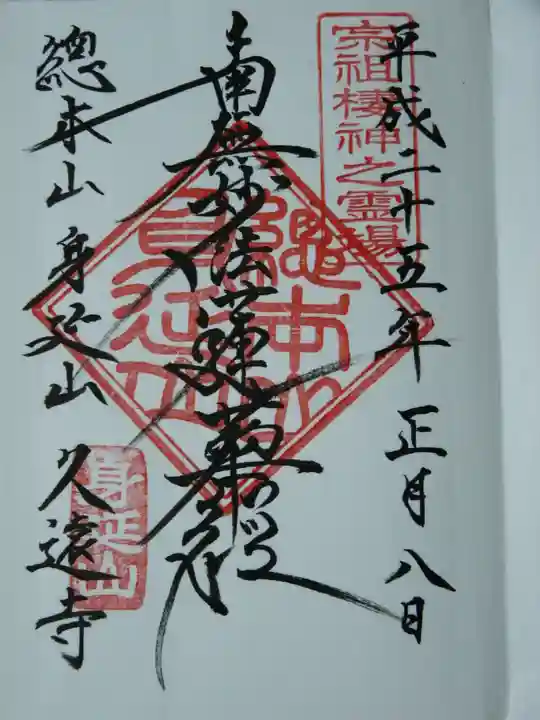 平成二十五年 正月八日
宗祖棲神之霊場
南無妙法蓮華経
總本山
身延山
總本山 身延山 久遠寺
身延山